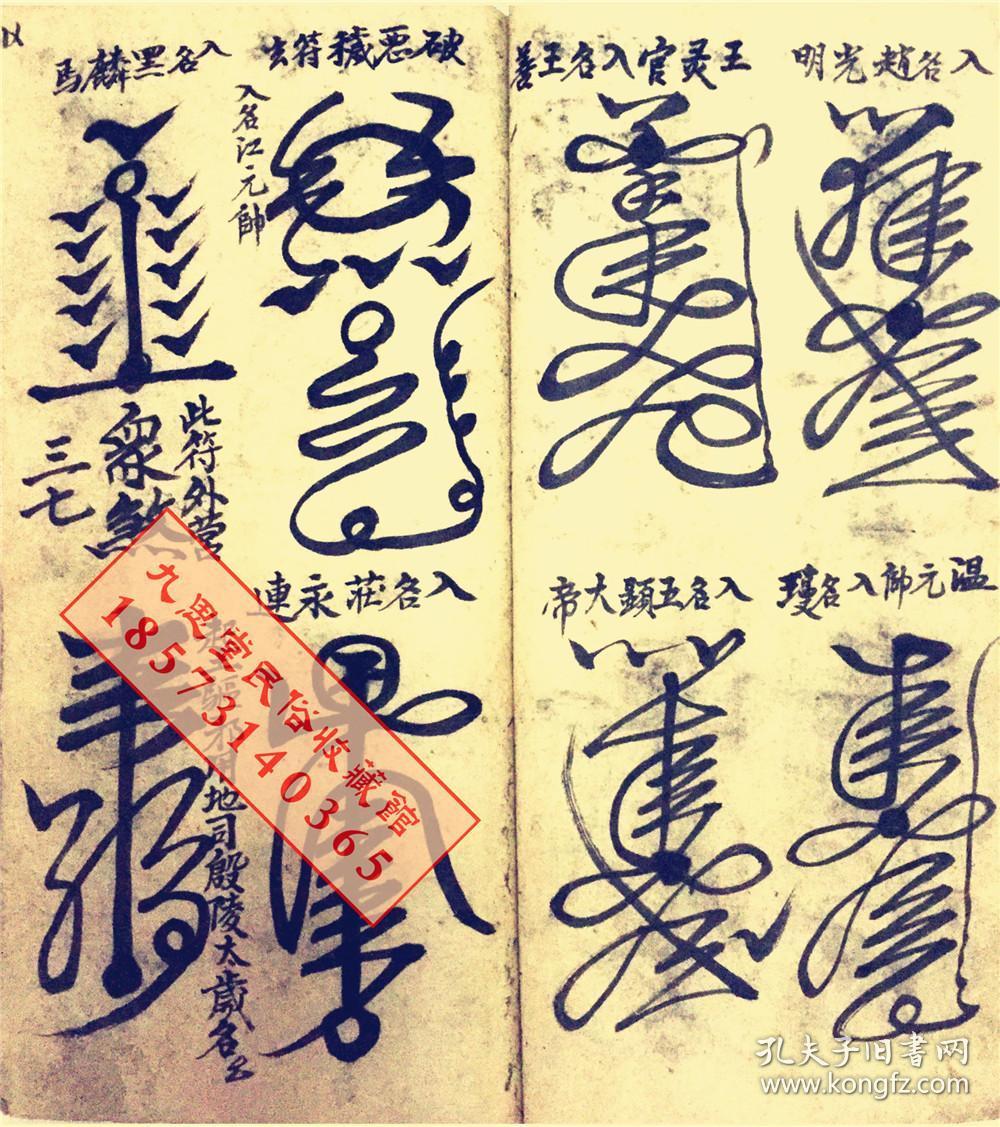 入名趙光明
王灵官入名王善
温元帥入名瓊
入名五顕大帝
破惡穢符式
入名江元帥
入名黑麟馬
此符外营
眾煞
三七
入名莊永連
地司殷陵太歲名
九思堂民俗收藏馆
18573140365
孔夫子旧书网
www.kongfz.com